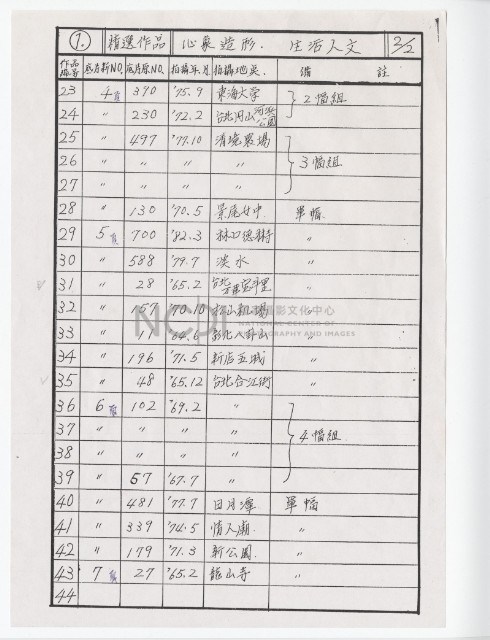 ① 精選作品 心象造形. 生活人文 2/2
作品編號 底片新NO. 底片原NO. 拍攝年.月 拍攝地点. 備 註
23 4頁 390 '75.9 東海大学 2幅組
24 〃 230 '72.2 台北円山河浜公園
25 〃 497 '77.10 清境農場 3幅組
26 〃 〃 〃 〃
27 〃 〃 〃 〃
28 〃 130 '70.5 景尾女中 單幅.
29 5頁 700 '82.3 林口 〃
30 〃 588 '79.7 淡水 〃
31 〃 28 '65.2 台北 〃
32 〃 57 '70.10 松山机場 〃
33 〃 11 '64.6 彰化八卦山 〃
34 〃 196 '71.5 新店 〃
35 〃 48 '65.12 台北合江街 〃
36 6頁 102 '69.2 〃 4幅組
37 〃 〃 〃 〃
38 〃 〃 〃 〃
39 〃 57 '67.7 〃
40 〃 481 '77.7 日月潭 單幅
41 〃 339 '74.5 情人廟. 〃
42 〃 179 '71.3 新公園. 〃
43 7頁 27 '65.2 龍山寺 〃
44